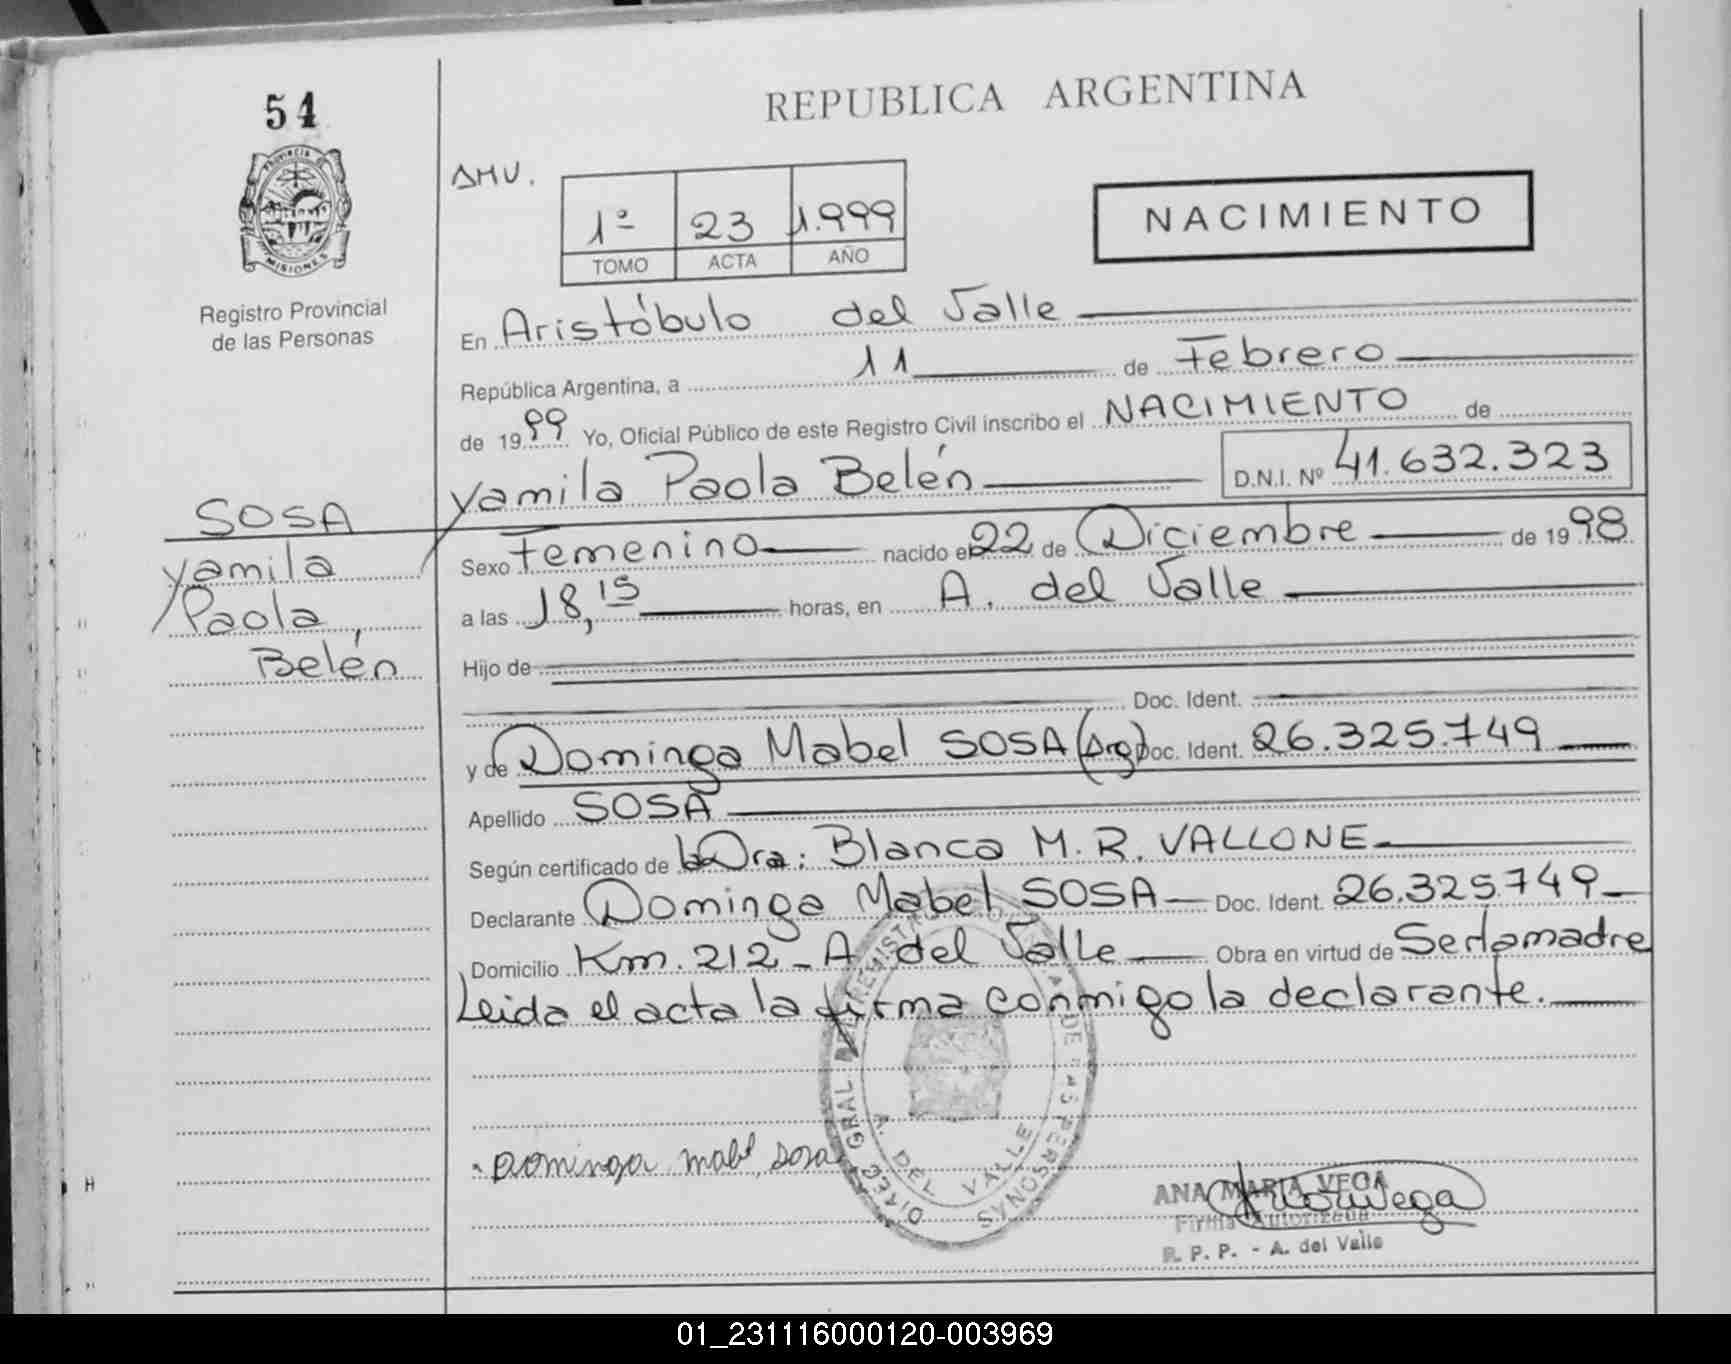 54
REPUBLICA ARGENTINA
PROVINCIA DE
MISIONES
Registro Provincial
de las Personas
1º 23 1.999
TOMO ACTA AÑO
NACIMIENTO
En Aristóbulo del Valle
República Argentina, a 11 de Febrero
de 1999 Yo, Oficial Público de este Registro Civil inscribo el NACIMIENTO de
Yamila Paola Belén D.N.I. Nº 41.632.323
SOSA
Yamila
Paola,
Belén
Sexo Femenino nacido el 22 de Diciembre de 1998
a las 18,15 horas, en A. del Valle
Hijo de
Doc. Ident.
y de Dominga Mabel SOSA (Arg) Doc. Ident. 26.325.749
Apellido SOSA
Según certificado de la Dra: Blanca M. R. VALLONE
Declarante Dominga Mabel SOSA Doc. Ident. 26.325.749
Domicilio Km. 212 - A. del Valle Obra en virtud de Ser la madre
Leida el acta la firma conmigo la declarante.
Dominga mabel sosa
A. DEL VALLE
ANA MARIA VEGA
Firma Autorizada
R. P. P. - A. del Valle
01_231116000120-003969